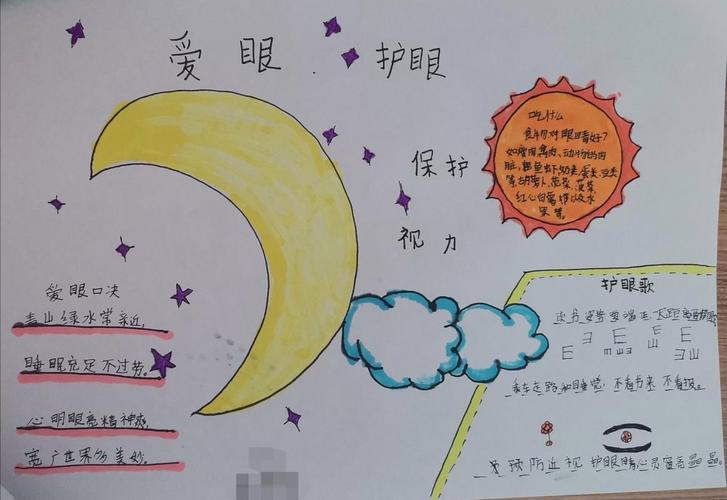 爱眼 护眼
保护
视力
吃什么
食物对眼睛好?
如瘦肉、禽肉、动物的内
脏,鱼虾奶类、蛋类、豆类
等,胡萝卜、菠菜
红心白薯
果等。
爱眼口决
青山绿水常亲近,
睡眠充足不过劳。
心明眼亮精神爽,
宽广世界多美妙。
护眼歌
读书姿势要端正
E E E E
E m ш E E ш
乘车走路和睡觉 不看书来 不看报。
预防近视 护眼睛心灵窗